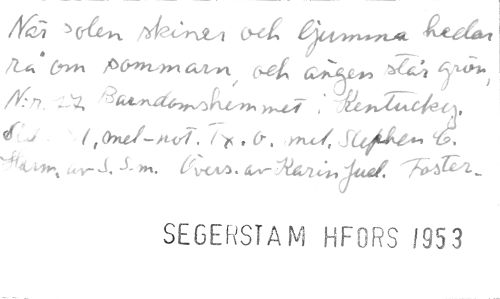 När solen skiner och ljumma hedar
rå om sommarn, och ängen står grön,
N:r. 27 Barndomshemmet i Kentucky.
1, mel-not. Tx. o. mel. Stephen C.
Harm. av S. S-m. Övers. av Karin Juel. Foster-
SEGERSTAM HFORS 1953